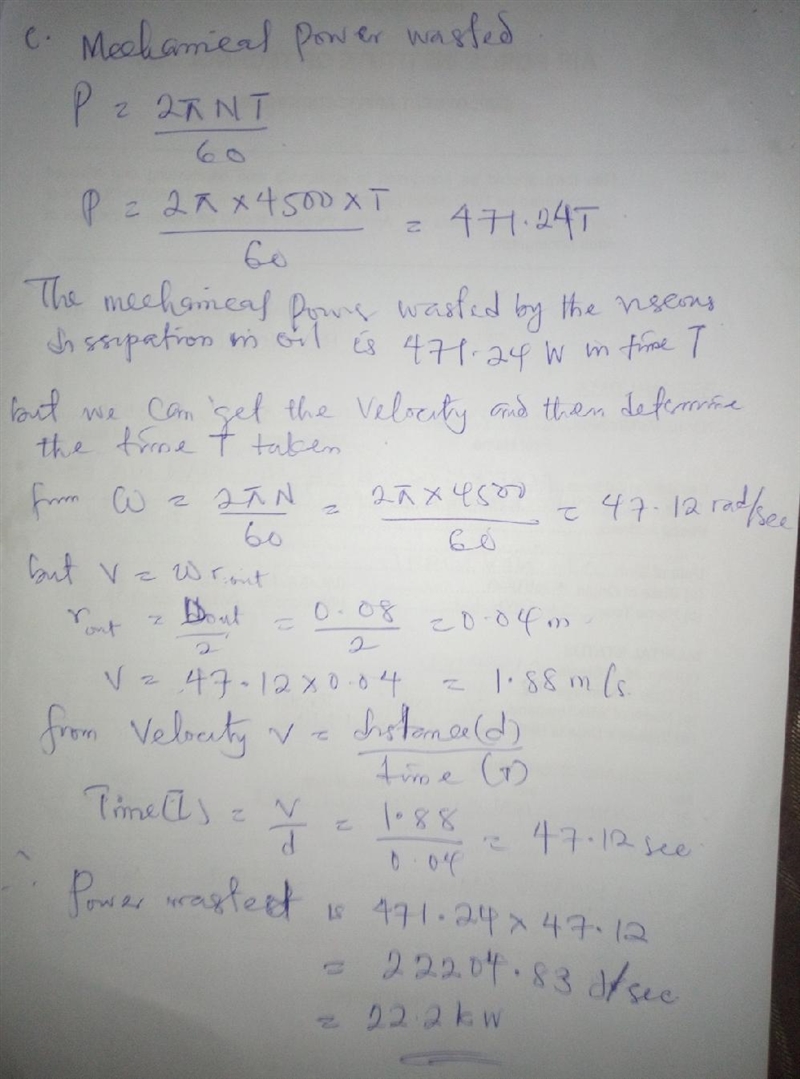 c. Mechanical Power wasted.
P = 2πNT
60
P = 2π × 4500 × T = 471.24T
60
The mechanical power wasted by the viscous
dissipation in oil is 471.24 W in time T
but we can get the velocity and then determine
the time T taken
from ω = 2πN = 2π × 4500 = 47.12 rad/sec
60 60
but V = ω rout
rout = Dout = 0.08 = 0.04 m
2 2
V = 47.12 × 0.04 = 1.88 m/s.
from Velocity V = distance(d)
time (T)
Time(T) = V = 1.88 = 47.12 sec
d 0.04
∴ Power wasted is 471.24 × 47.12
= 22204.83 J/sec
= 22.2 kW